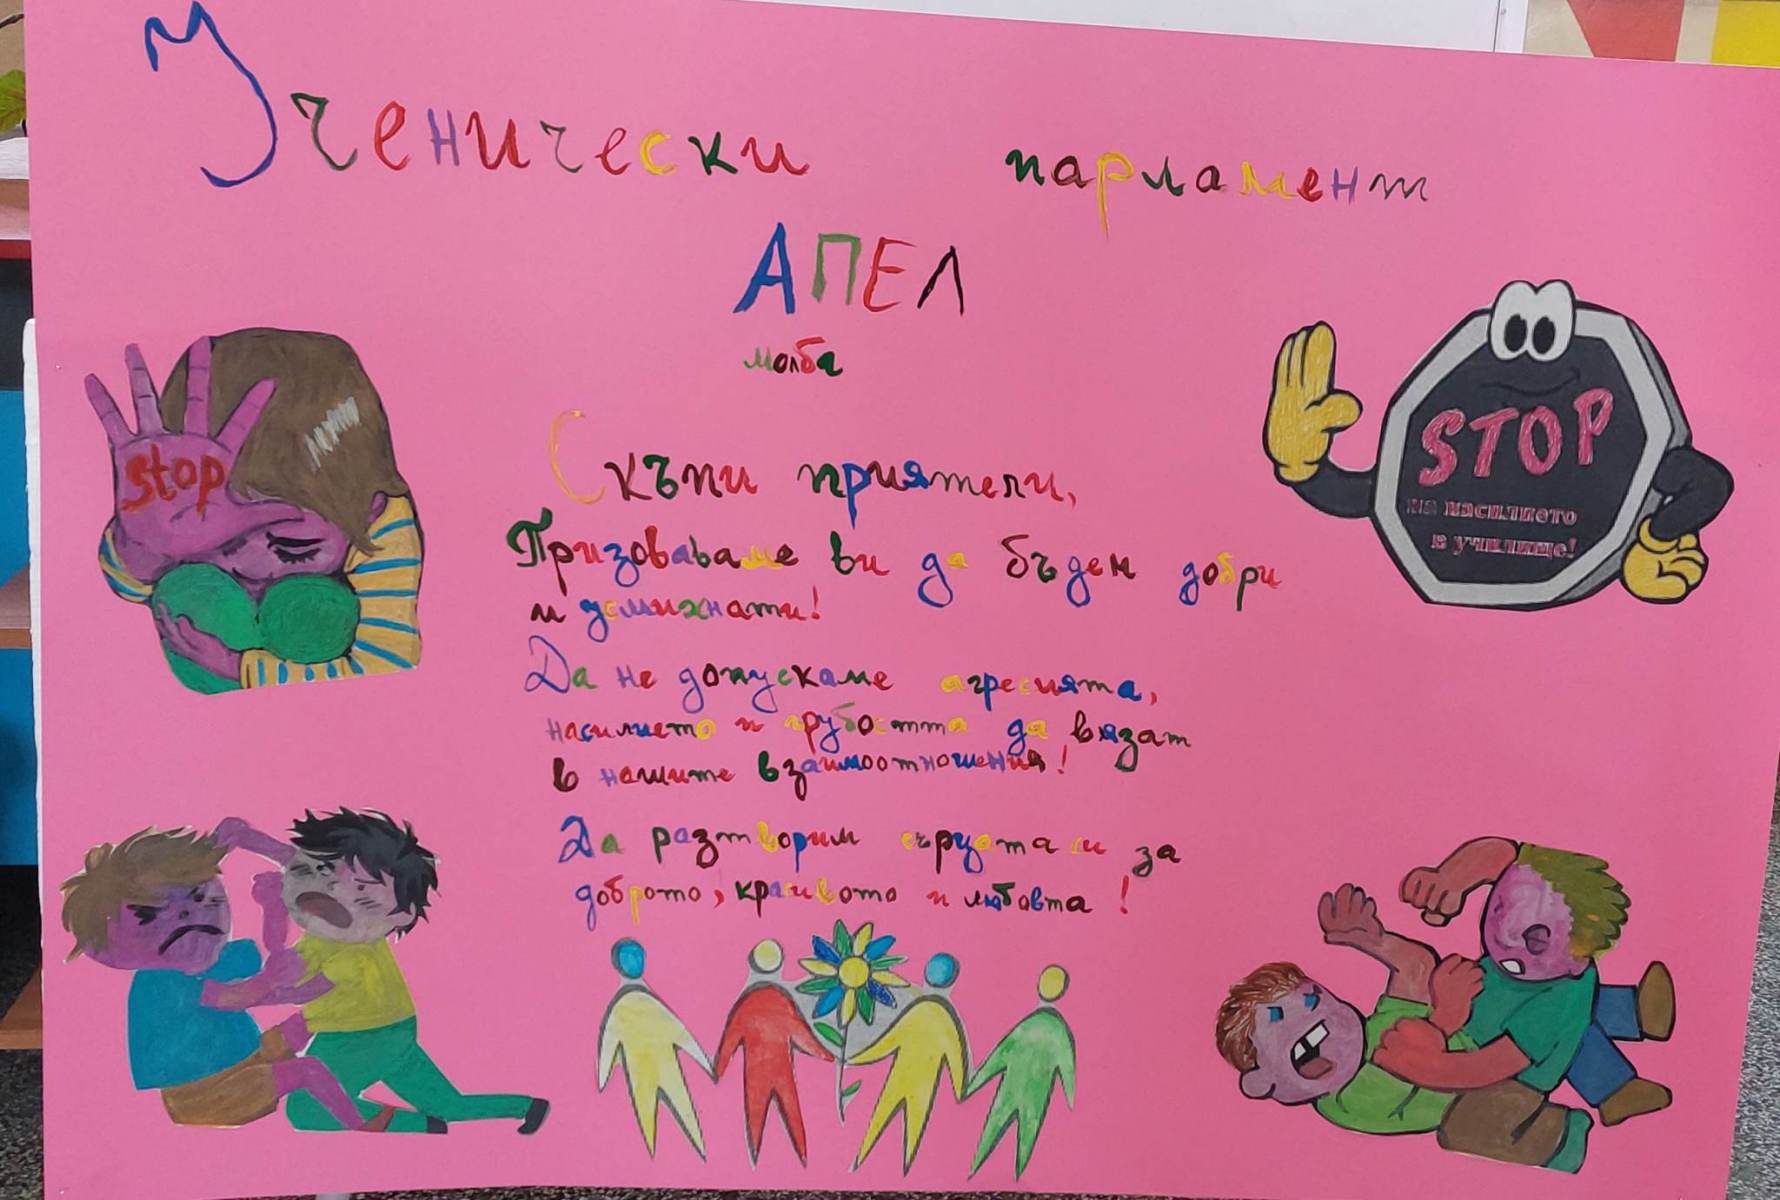 Ученически парламент
АПЕЛ
молба
Скъпи приятели,
Призоваваме ви да бъдем добри
и усмихнати!
Да не допускаме агресията,
насилието и грубостта да вязат
в нашите взаимоотношения!
Да разтворим сърцата си за
доброто, красивото и любовта!
stop
STOP
на насилието
в училище!